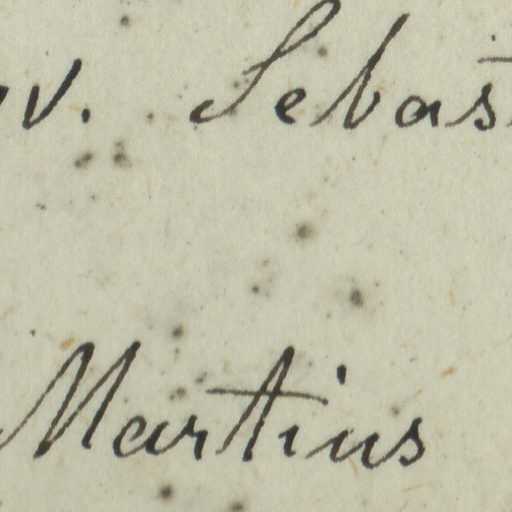 v. Sebast
Martius